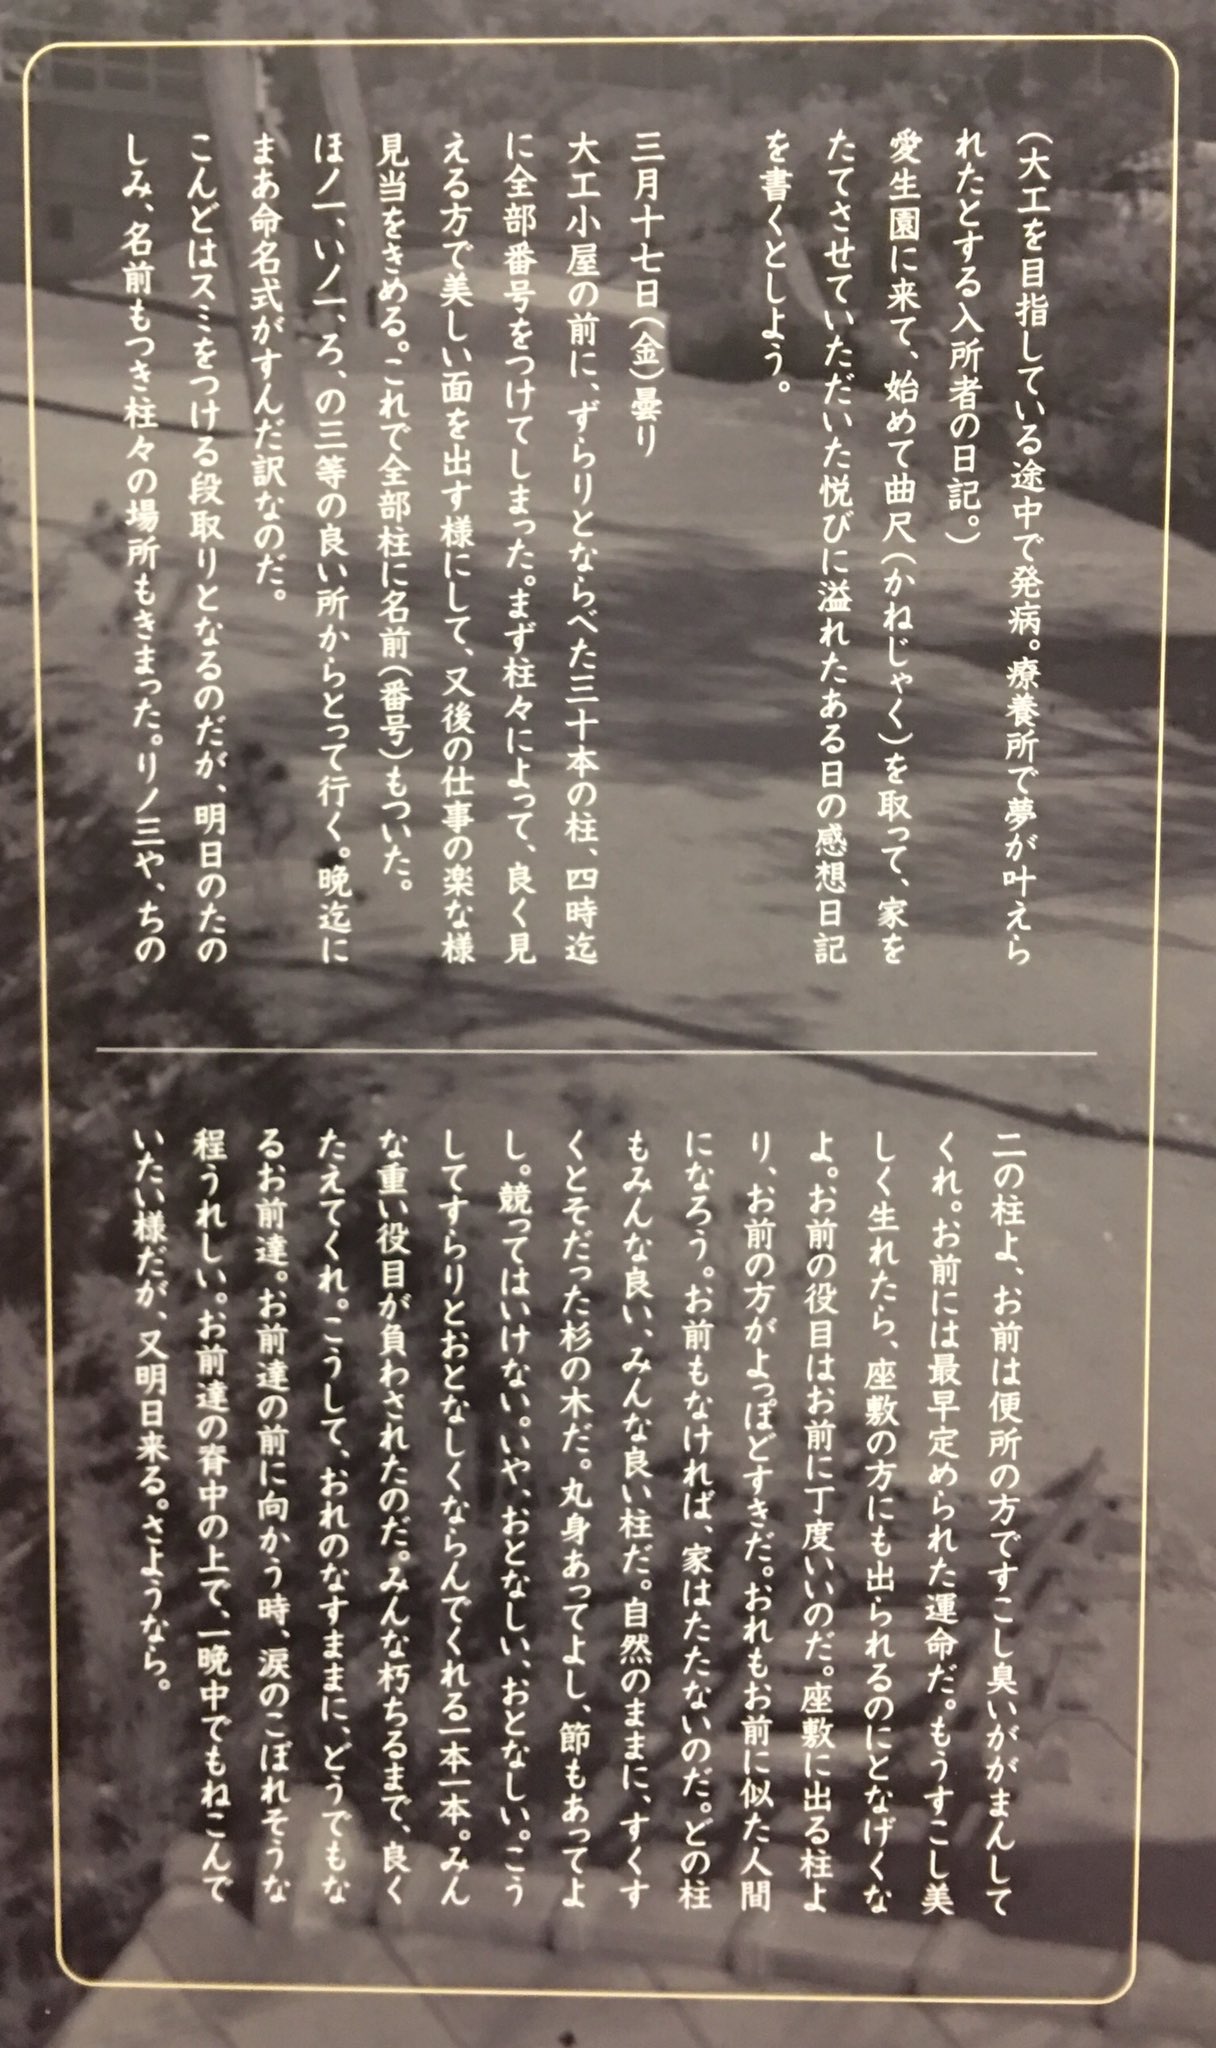 (大工を目指している途中で発病。療養所で夢が叶えら
れたとする入所者の日記。)
愛生園に来て、始めて曲尺(かねじゃく)を取って、家を
たてさせていただいた悦びに溢れたある日の感想日記
を書くとしよう。
三月十七日(金)曇り
大工小屋の前に、ずらりとならべた三十本の柱、四時迄
に全部番号をつけてしまった。まず柱々によって、良く見
える方で美しい面を出す様にして、又後の仕事の楽な様
見当をきめる。これで全部柱に名前(番号)もついた。
ほノ一、いノ一、ろ、の三等の良い所からとって行く。晩迄に
まあ命名式がすんだ訳なのだ。
こんどはスミをつける段取りとなるのだが、明日のたの
しみ、名前もつき柱々の場所もきまった。リノ三や、ちの
二の柱よ、お前は便所の方ですこし臭いががまんして
くれ。お前には最早定められた運命だ。もうすこし美
しく生れたら、座敷の方にも出られるのにとなげくな
よ。お前の役目はお前に丁度いいのだ。座敷に出る柱よ
り、お前の方がよっぽどすきだ。おれもお前に似た人間
になろう。お前もなければ、家はたたないのだ。どの柱
もみんな良い、みんな良い柱だ。自然のままに、すくす
くとそだった杉の木だ。丸身あってよし、節もあってよ
し。競ってはいけない。いや、おとなしい、おとなしい。こう
してすらりとおとなしくならんでくれる一本一本。みん
な重い役目が負わされたのだ。みんな朽ちるまで、良く
たえてくれ。こうして、おれのなすままに、どうでもな
るお前達。お前達の前に向かう時、涙のこぼれそうな
程うれしい。お前達の脊中の上で、一晩中でもねこんで
いたい様だが、又明日来る。さようなら。